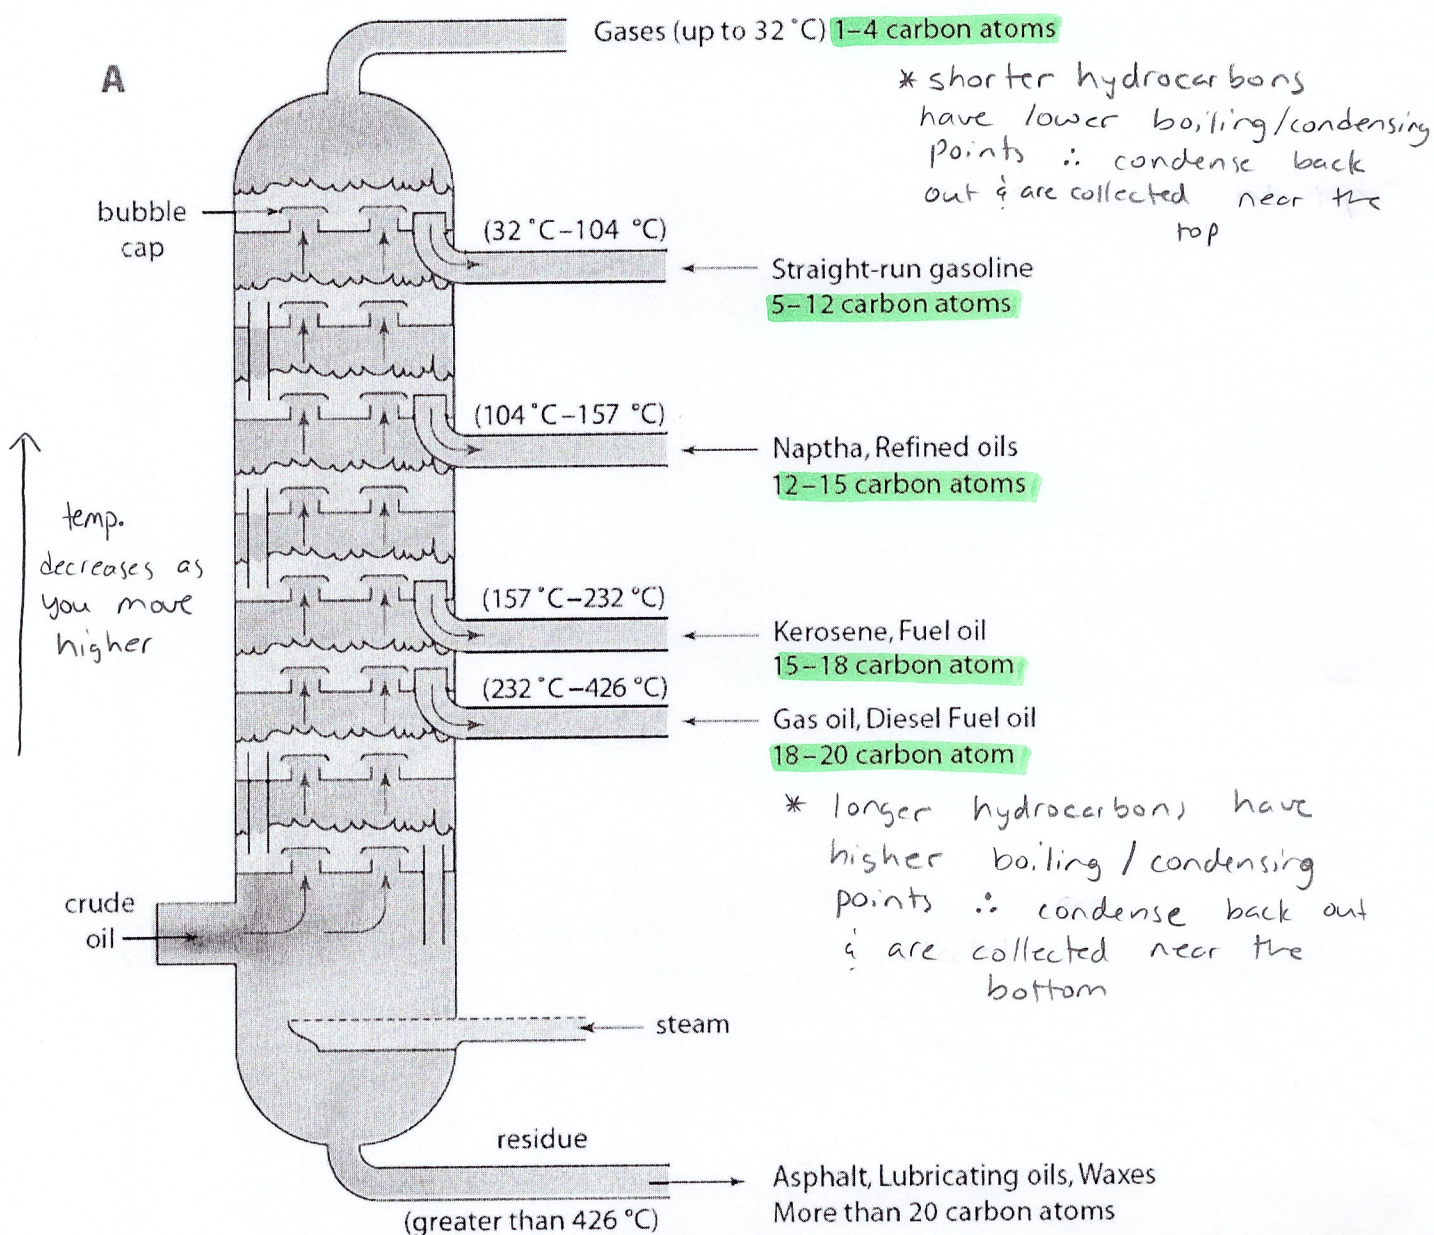 Gases (up to 32 °C) 1–4 carbon atoms
A
* shorter hydrocarbons
have lower boiling/condensing
points ∴ condense back
out & are collected near the
top
bubble
cap
(32 °C–104 °C)
Straight-run gasoline
5–12 carbon atoms
(104 °C–157 °C)
Naptha, Refined oils
12–15 carbon atoms
temp.
decreases as
you move
higher
(157 °C–232 °C)
Kerosene, Fuel oil
15–18 carbon atom
(232 °C–426 °C)
Gas oil, Diesel Fuel oil
18–20 carbon atom
* longer hydrocarbons have
higher boiling / condensing
points ∴ condense back out
& are collected near the
bottom
crude
oil
steam
residue
(greater than 426 °C)
Asphalt, Lubricating oils, Waxes
More than 20 carbon atoms